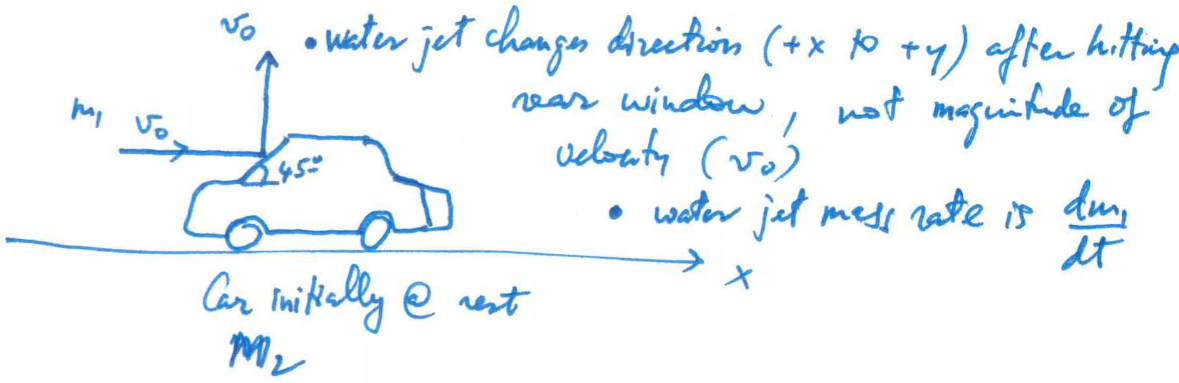 v₀
• water jet changes direction (+x to +y) after hitting
rear window, not magnitude of
velocity (v₀)
m₁ v₀
45°
• water jet mass rate is dm₁/dt
x
Car initially @ rest
m₂